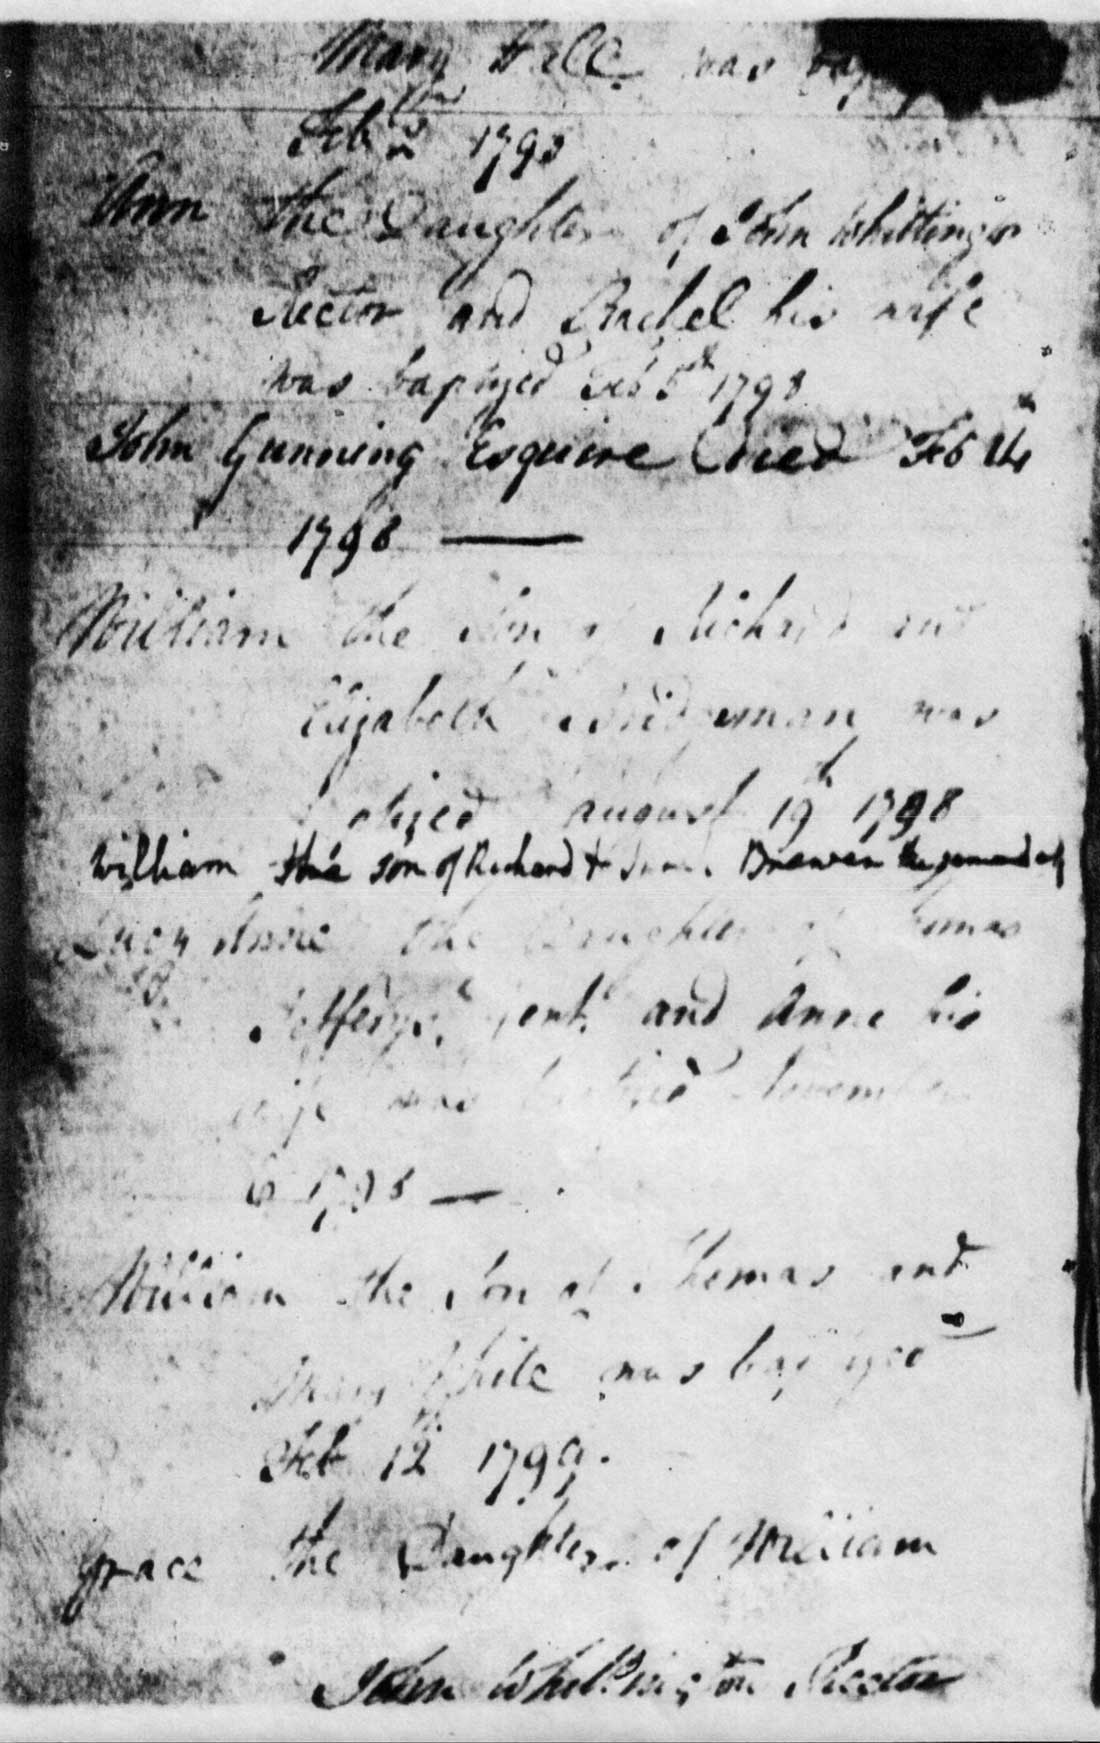 Mary Hall was bap
Feb 1798
Ann the Daughter of John Whitting
Rector and Rachel his wife
was baptized Feb 5th 1798
John Gunning Esquire Died Feb 14
1798 —
William the Son of Richard and
Elizabeth Bridgeman was
tized August 19th 1798
William the son of Richard & Brewer
Lucy Anne the Daughter of Thomas
Jefferys Gent. and Anne his
wife was baptized November
6 1798 —
William the Son of Thomas and
Mary White was baptized
Feb 12 1799.
Grace the Daughter of William
John Whittington Rector